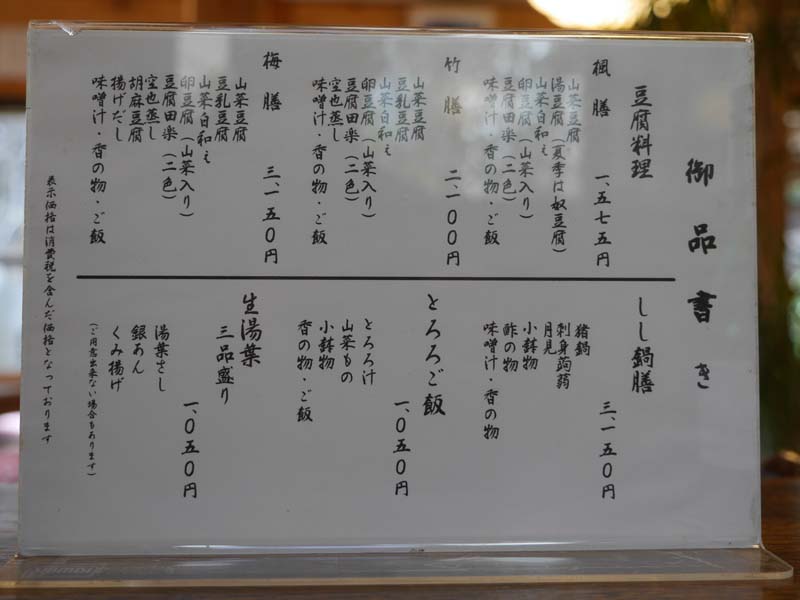 御品書き
豆腐料理
楓膳 一、五七五円
山菜豆腐
湯豆腐(夏季は奴豆腐)
山菜白和え
卵豆腐(山菜入り)
豆腐田楽(二色)
味噌汁・香の物・ご飯
竹膳 二、一〇〇円
山菜豆腐
豆乳豆腐
山菜白和え
卵豆腐(山菜入り)
豆腐田楽(二色)
空也蒸し
味噌汁・香の物・ご飯
梅膳 三、一五〇円
山菜豆腐
豆乳豆腐
山菜白和え
卵豆腐(山菜入り)
豆腐田楽(二色)
空也蒸し
胡麻豆腐
揚げだし
味噌汁・香の物・ご飯
しし鍋膳 三、一五〇円
猪鍋
刺身蒟蒻
月見
小鉢物
酢の物
味噌汁・香の物
とろろご飯 一、〇五〇円
とろろ汁
山菜もの
小鉢物
香の物・ご飯
生湯葉
三品盛り 一、〇五〇円
湯葉さし
銀あん
くみ揚げ
(ご用意出来ない場合もあります)
表示価格は消費税を含んだ価格となっております